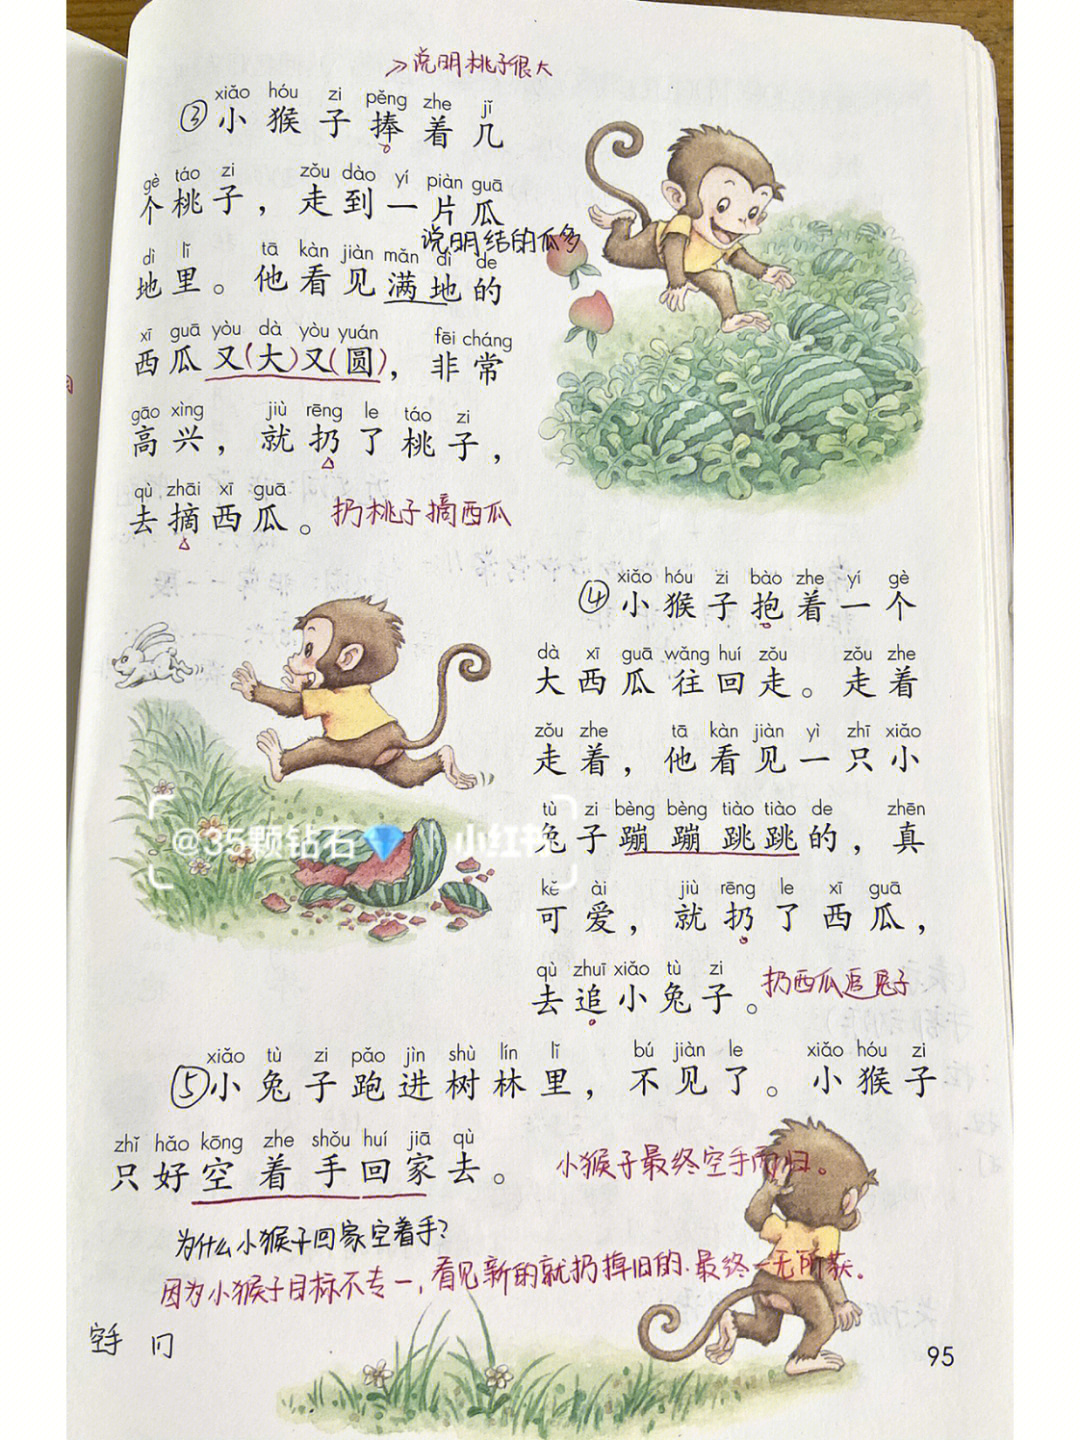 说明桃子很大
xiǎo hóu zi pěng zhe jǐ
③小猴子捧着几
gè táo zi zǒu dào yí piàn guā
个桃子，走到一片瓜
说明结的瓜多
dì lǐ tā kàn jiàn mǎn dì de
地里。他看见满地的
xī guā yòu dà yòu yuán fēi cháng
西瓜又(大)又(圆)，非常
gāo xìng jiù rēng le táo zi
高兴，就扔了桃子，
qù zhāi xī guā
去摘西瓜。扔桃子摘西瓜
xiǎo hóu zi bào zhe yí gè
④小猴子抱着一个
dà xī guā wǎng huí zǒu zǒu zhe
大西瓜往回走。走着
zǒu zhe tā kàn jiàn yì zhī xiǎo
走着，他看见一只小
tù zi bèng bèng tiào tiào de zhēn
兔子蹦蹦跳跳的，真
kě ài jiù rēng le xī guā
可爱，就扔了西瓜，
qù zhuī xiǎo tù zi
去追小兔子。扔西瓜追兔子
@35颗钻石💎 小红书
xiǎo tù zi pǎo jìn shù lín lǐ bú jiàn le xiǎo hóu zi
⑤小兔子跑进树林里，不见了。小猴子
zhǐ hǎo kōng zhe shǒu huí jiā qù
只好空着手回家去。
小猴子最终空手而归。
为什么小猴子回家空着手?
因为小猴子目标不专一，看见新的就扔掉旧的.最终一无所获。
空手
95